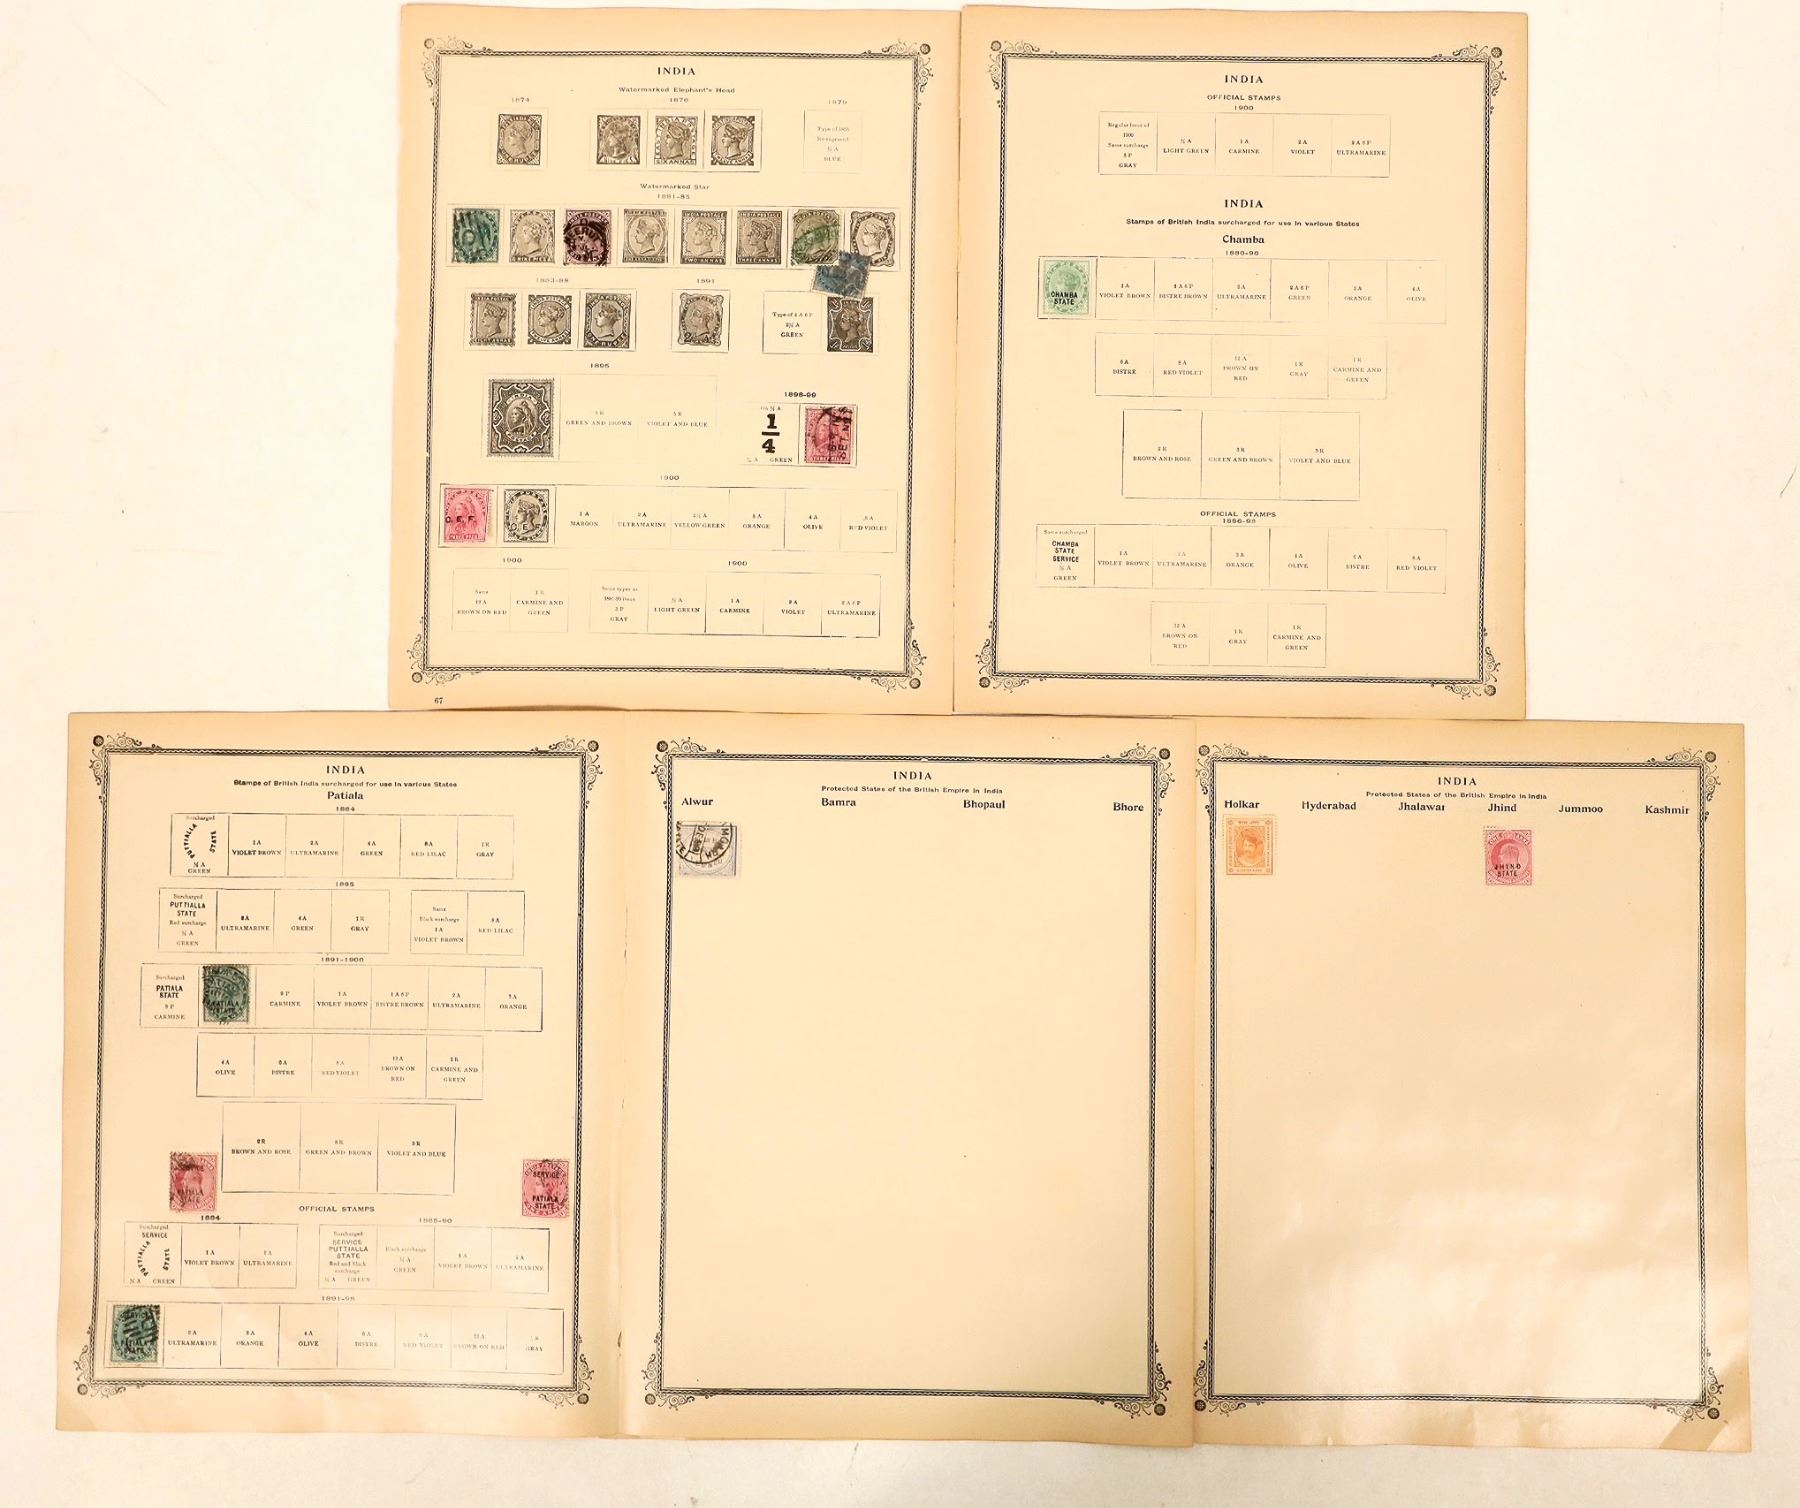 INDIA
Watermarked Elephant's Head
1874 1876 1879
Type of 1865
Re-engraved
½ A
BLUE
Watermarked Star
1881-85
1883-88 1891
Type of 4 A 6 P
2½ A
GREEN
1895
GREEN AND BROWN
5 R
VIOLET AND BLUE
1898-99
1/4
½ A GREEN
1900
C. E. F. C. E. F.
1 A
MAROON
2 A
ULTRAMARINE
2½ A
YELLOW GREEN
3 A
ORANGE
4 A
OLIVE
8 A
RED VIOLET
1900 1900
Same
12 A
BROWN ON RED
1 R
CARMINE AND
GREEN
3 P
GRAY
½ A
LIGHT GREEN
1 A
CARMINE
2 A
VIOLET
2 A 6 P
ULTRAMARINE
67
INDIA
OFFICIAL STAMPS
1900
Regular Issue of
1900
Same surcharge
3 P
GRAY
½ A
LIGHT GREEN
1 A
CARMINE
2 A
VIOLET
2 A 6 P
ULTRAMARINE
INDIA
Stamps of British India surcharged for use in various States
Chamba
1886-98
CHAMBA
STATE
1 A
VIOLET BROWN
1 A 6 P
BISTRE BROWN
2 A
ULTRAMARINE
2 A 6 P
GREEN
3 A
ORANGE
4 A
OLIVE
6 A
BISTRE
8 A
RED VIOLET
12 A
BROWN ON
RED
1 R
GRAY
1 R
CARMINE AND
GREEN
2 R
BROWN AND ROSE
3 R
GREEN AND BROWN
5 R
VIOLET AND BLUE
OFFICIAL STAMPS
1886-98
Same surcharged
CHAMBA
STATE
SERVICE
½ A
GREEN
1 A
VIOLET BROWN
2 A
ULTRAMARINE
3 A
ORANGE
4 A
OLIVE
6 A
BISTRE
8 A
RED VIOLET
12 A
BROWN ON
RED
1 R
GRAY
1 R
CARMINE AND
GREEN
INDIA
Stamps of British India surcharged for use in various States
Patiala
1884
Surcharged
PUTTIALLA
STATE
½ A
GREEN
1 A
VIOLET BROWN
2 A
ULTRAMARINE
4 A
GREEN
8 A
RED LILAC
1 R
GRAY
1885
Surcharged
PUTTIALLA
STATE
Red surcharge
½ A
GREEN
2 A
ULTRAMARINE
4 A
GREEN
1 R
GRAY
Same
Black surcharge
1 A
VIOLET BROWN
8 A
RED LILAC
1891-1900
Surcharged
PATIALA
STATE
3 P
CARMINE
PATIALA
9 P
CARMINE
1 A
VIOLET BROWN
1 A 6 P
BISTRE BROWN
2 A
ULTRAMARINE
3 A
ORANGE
4 A
OLIVE
6 A
BISTRE
8 A
RED VIOLET
12 A
BROWN ON
RED
1 R
CARMINE AND
GREEN
2 R
BROWN AND ROSE
3 R
GREEN AND BROWN
5 R
VIOLET AND BLUE
SERVICE
PATIALA
STATE
SERVICE
PATIALA
STATE
OFFICIAL STAMPS
1884 1885-90
Surcharged
SERVICE
PUTTIALLA
STATE
½ A GREEN
1 A
VIOLET BROWN
2 A
ULTRAMARINE
Surcharged
SERVICE
PUTTIALLA
STATE
Red and black
surcharge
½ A GREEN
Black surcharge
½ A
GREEN
1 A
VIOLET BROWN
2 A
ULTRAMARINE
1891-98
SERVICE
PATIALA
STATE
2 A
ULTRAMARINE
3 A
ORANGE
4 A
OLIVE
6 A
BISTRE
8 A
RED VIOLET
12 A
BROWN ON RED
1 R
GRAY
INDIA
Protected States of the British Empire in India
Alwur Bamra Bhopaul Bhore
INDIA
Protected States of the British Empire in India
Holkar Hyderabad Jhalawar Jhind Jummoo Kashmir
JHIND
STATE